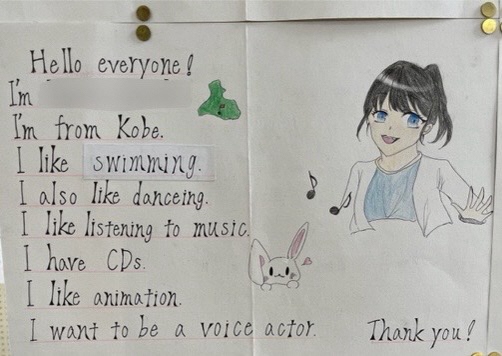 Hello everyone!
I'm
I'm from Kobe.
I like swimming.
I also like danceing.
I like listening to music.
I have CDs.
I like animation.
I want to be a voice actor.
Thank you!